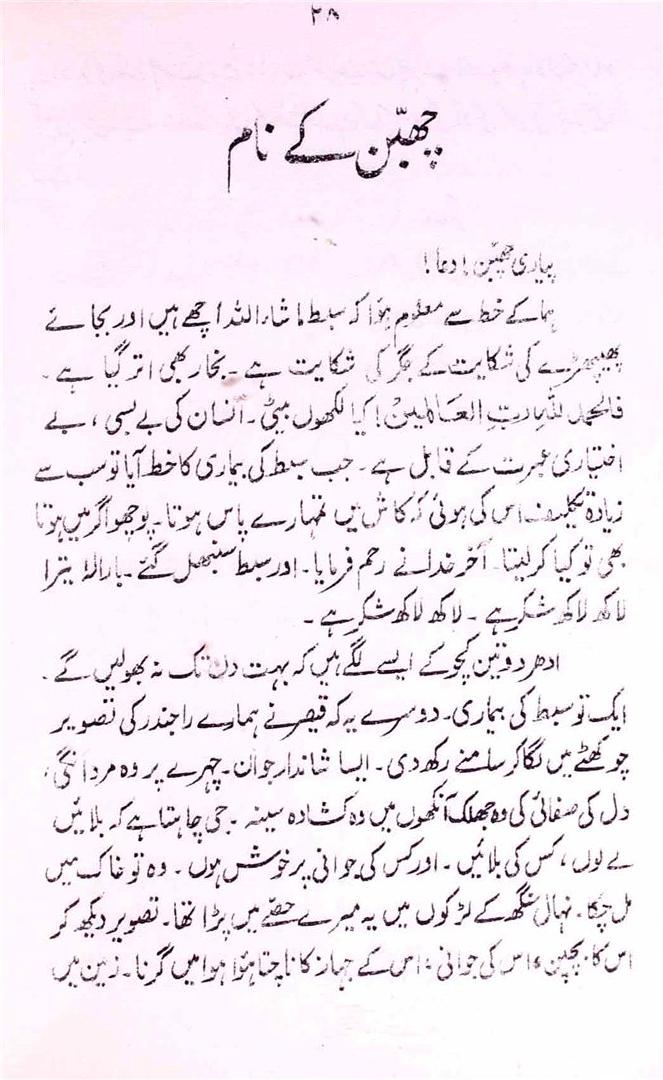 ۲۸
چھبّن کے نام
پیاری چھبّن! دعا!
ہما کے خط سے معلوم ہؤا کہ سبط ماشاء اللہ اچھے ہیں اور بجائے
پھیپھڑے کی شکایت کے جگر کی شکایت ہے۔ بخار بھی اتر گیا ہے۔
فالحمد للّٰہِ ربِّ العَالمینْ! کیا لکھوں بیٹی۔ انسان کی بے بسی، بے
اختیاری عبرت کے قابل ہے۔ جب سبط کی بیماری کا خط آیا تو سب سے
زیادہ تکلیف اس کی ہوئی کہ کاش میں تمہارے پاس ہوتا۔ پوچھو اگر میں ہوتا
بھی تو کیا کر لیتا۔ آخر خدا نے رحم فرمایا۔ اور سبط سنبھل گئے۔ بارالٰہا تیرا
لاکھ لاکھ شکر ہے۔ لاکھ لاکھ شکر ہے۔
ادھر دو تین کچوکے ایسے لگے ہیں کہ بہت دن تک نہ بھولیں گے۔
ایک تو سبط کی بیماری۔ دوسرے یہ کہ قیصر نے ہمارے راجندر کی تصویر
چوکھٹے میں لگا کر سامنے رکھ دی۔ ایسا شاندار جوان۔ چہرے پر وہ مردانگی،
دل کی صفائی کی وہ جھلک آنکھوں میں وہ کشادہ سینہ۔ جی چاہتا ہے کہ بلائیں
لے لوں، کس کی بلائیں۔ اور کس کی جوانی پر خوش ہوں۔ وہ تو خاک میں
مل چکا۔ نہال سنگھ کے لڑکوں میں یہ میرے حصّے میں پڑا تھا۔ تصویر دیکھ کر
اس کا بچپن، اس کی جوانی، اس کے جہاز کا ناچتا ہؤا ہوا میں گرنا۔ زمین میں